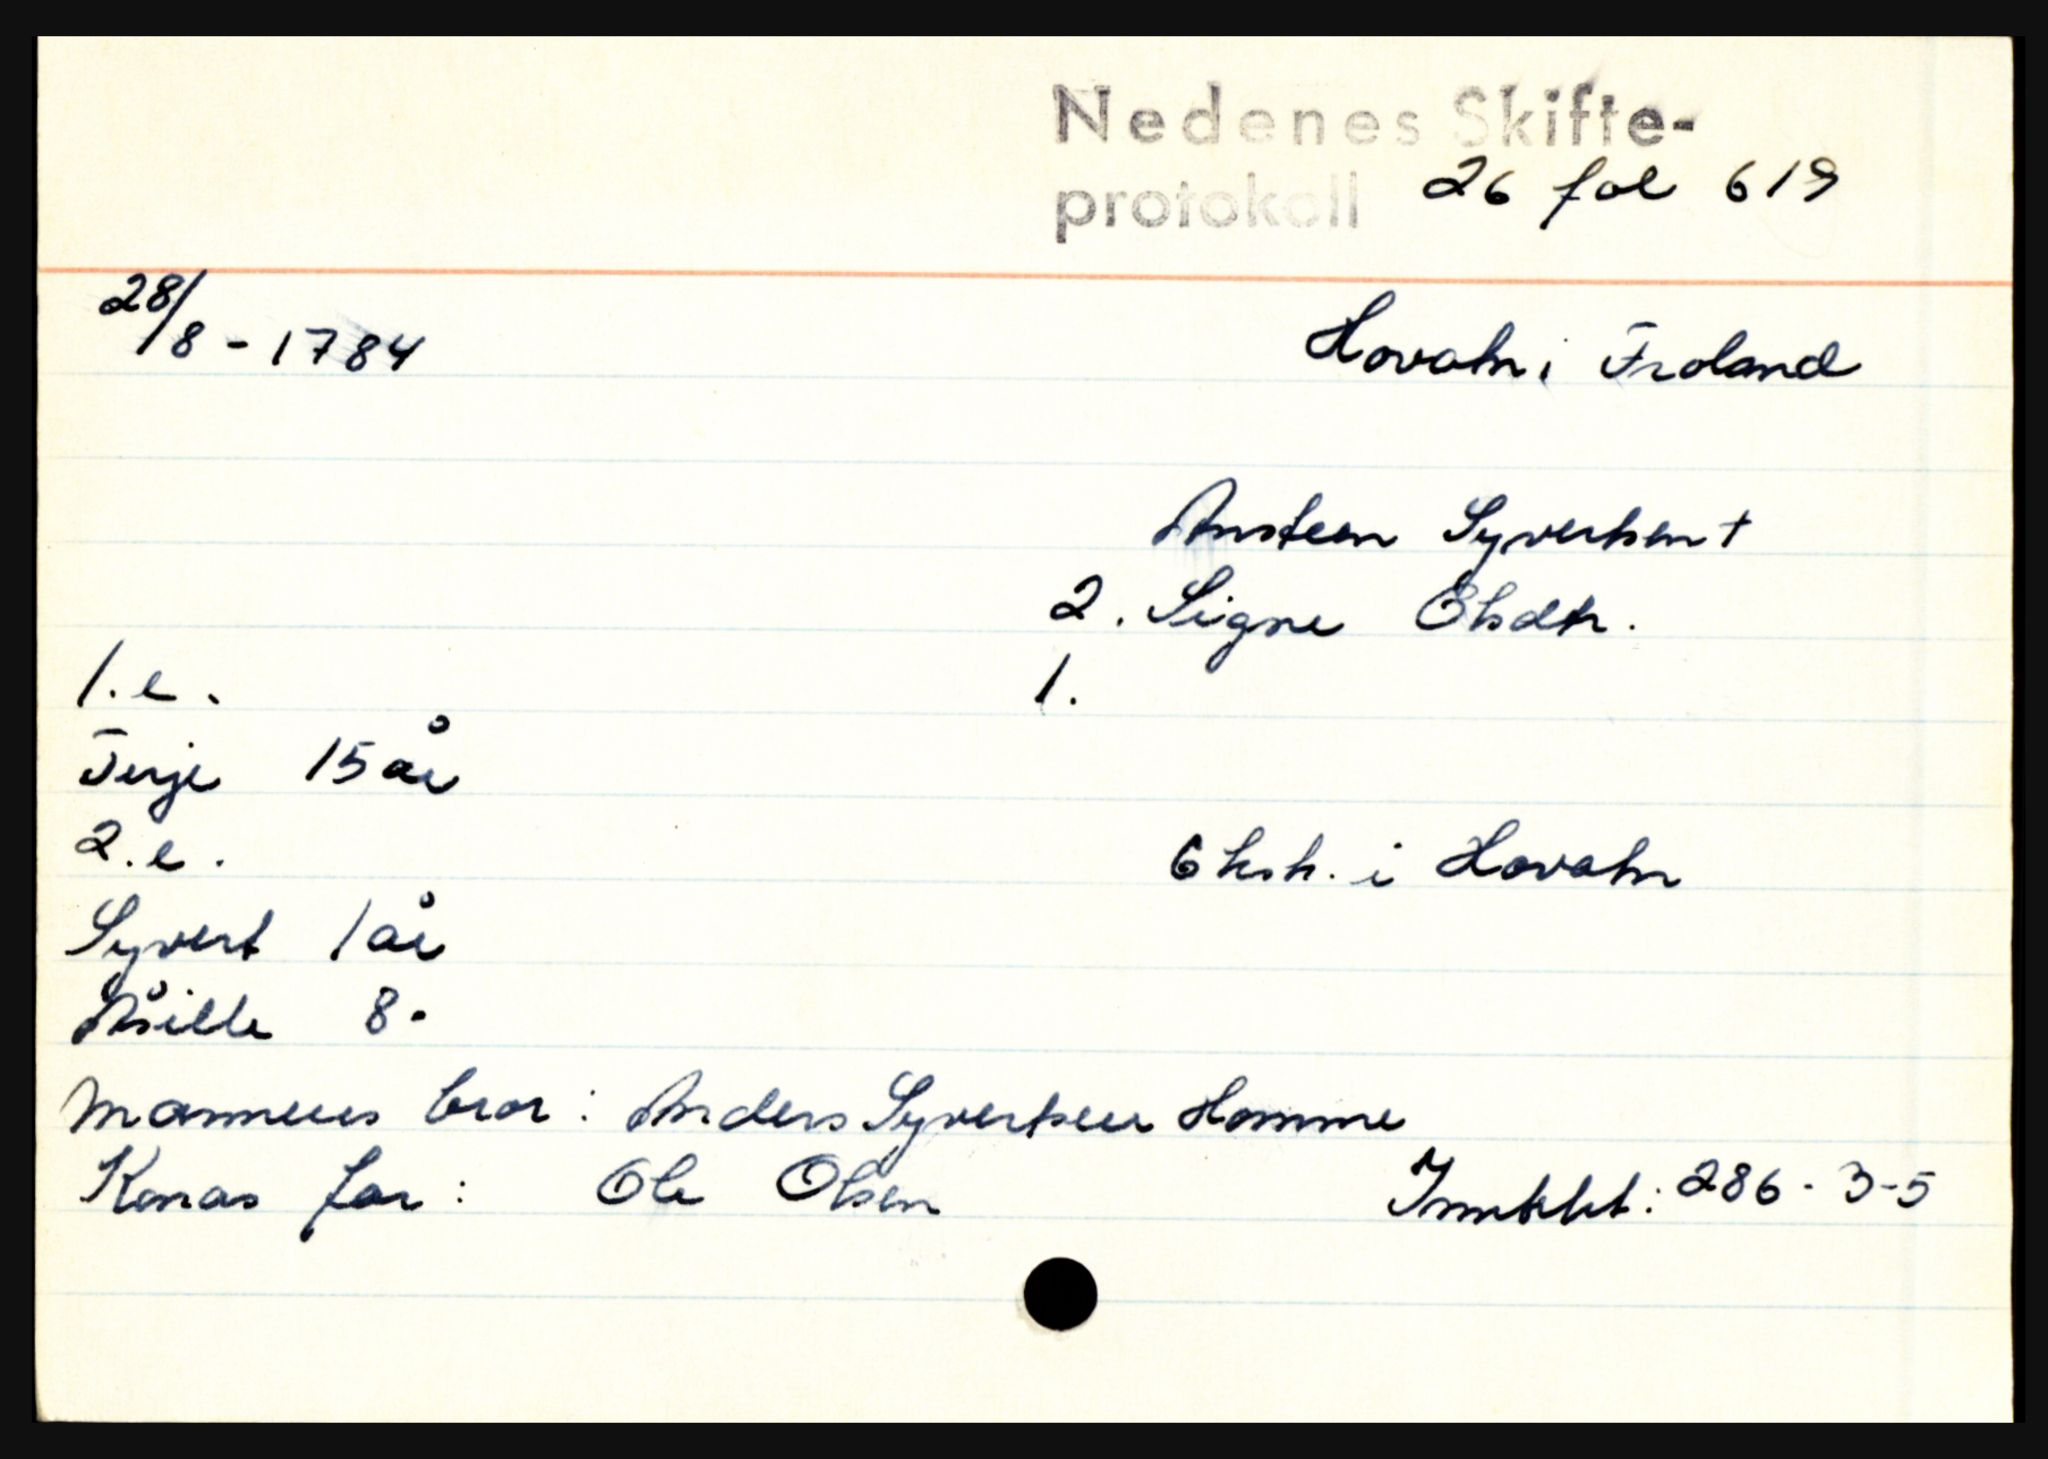 Nedenes Skifte-
protokoll 26 fol 619
28/8 - 1784 Hovatn i Froland
Ansteen Syvertsen †
2. Signe Olsdtr.
1. e. 1.
Terje 15 år
2. e. 6 ksk. i Hovatn
Syvert 1 år
Åsille 8 -
Mannens bror : Anders Syvertsen Homme
Konas far : Ole Olsen Inntekt : 286 - 3 - 5